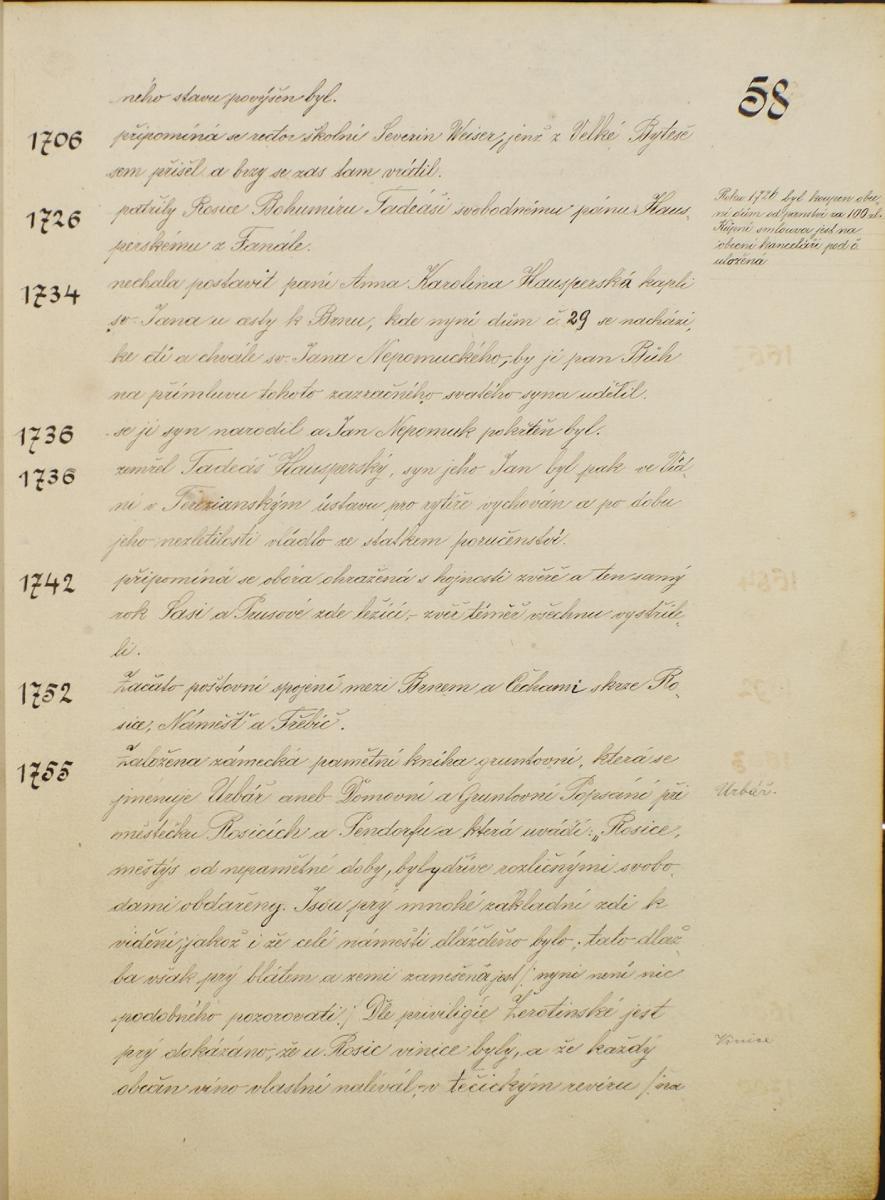 58
ného stavu povýšen byl.
1706 připomíná se rector školní Severin Weiser, jenž z Velké Byteše
sem přišel a brzy se zas tam vrátil.
1726 patřily Rosice Bohumíru Tadeáši svobodnému pánu Haus-
perskému z Fanále.
Roku 1726 byl koupen obec-
ní dům od panství za 100 zl.
Kupní smlouva jest na
obecní kanceláři pod č.
uložená
1734 nechala postavit paní Anna Karolina Hausperská kapli
sv. Jana u cesty k Brnu, kde nyní dům č. 29 se nachází,
ke cti a chvále sv. Jana Nepomuckého, by jí pan Bůh
na přímluvu tohoto zazračného svatého syna udělil.
1736 se jí syn narodil a Jan Nepomuk pokřtěn byl.
1736 zemřel Tadeáš Hausperský, syn jeho Jan byl pak ve Víd-
ni v Terezianským ústavu pro rytíře vychován a po dobu
jeho nezletilosti vládlo ze statkem poručenství.
1742 připomíná se obora ohražená s hojností zvěře a ten samý
rok Sasi a Prusové zde ležící, zvěř téměř všechnu vystříle-
li.
1752 Začato poštovní spojení mezi Brnem a Čechami skrze Ro-
sice, Náměšť a Třebíč.
1755 Založena zámecká pamětní kniha gruntovní, která se
jmenuje Urbář aneb Domovní a Gruntovní Popsání při
Urbář.
městečku Rosicích a Tendorfu a která uvádí: „Rosice,
městýs od nepamětné doby, byly dříve rozličnými svobo-
dami obdařeny. Jsou prý mnohé základní zdi k
vidění, jakož i že celé náměstí dlážděno bylo, tato dlaž-
ba však prý blátem a zemí zanešená jest /: nyní není nic
podobného pozorovati :/ Dle priviligie Žerotinské jest
prý dokázáno, že u Rosic vinice byly, a že každý
Vinice
občan víno vlastní naléval, v tečickým revíru /: na